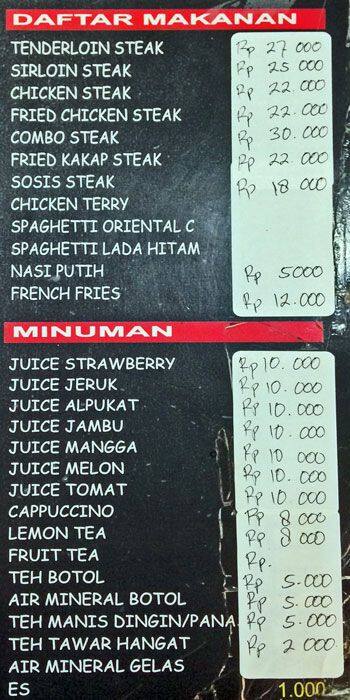 DAFTAR MAKANAN
TENDERLOIN STEAK Rp 27 000
SIRLOIN STEAK Rp 25 000
CHICKEN STEAK Rp 22.000
FRIED CHICKEN STEAK Rp 22.000
COMBO STEAK Rp 30.000
FRIED KAKAP STEAK Rp 22 000
SOSIS STEAK Rp 18 000
CHICKEN TERRY
SPAGHETTI ORIENTAL C
SPAGHETTI LADA HITAM
NASI PUTIH Rp 5000
FRENCH FRIES Rp 12.000
MINUMAN
JUICE STRAWBERRY Rp 10.000
JUICE JERUK Rp 10.000
JUICE ALPUKAT Rp 10.000
JUICE JAMBU Rp 10.000
JUICE MANGGA Rp 10 000
JUICE MELON Rp 10.000
JUICE TOMAT Rp 10 000
CAPPUCCINO Rp 8 000
LEMON TEA Rp 8 000
FRUIT TEA Rp.
TEH BOTOL Rp 5.000
AIR MINERAL BOTOL Rp 5.000
TEH MANIS DINGIN/PANA Rp 5.000
TEH TAWAR HANGAT Rp 2 000
AIR MINERAL GELAS
ES 1.000